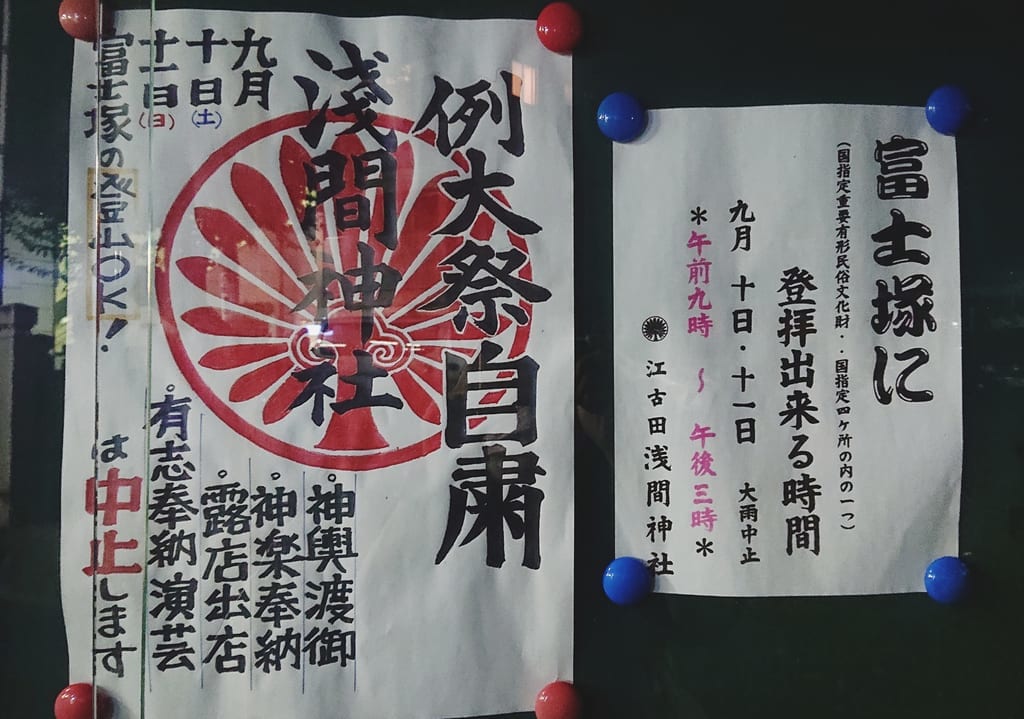 富士塚に
(国指定重要有形民俗文化財・・国指定四ヶ所の内の一つ)
登拝出来る時間
九月 十日・十一日 大雨中止
*午前九時 ~ 午後三時*
江古田浅間神社
例大祭自粛
淺間神社
九月
十日(土)
十一日(日)
富士塚の登山OK!
・神輿渡御
・神楽奉納
・露店出店
・有志奉納演芸
は中止します